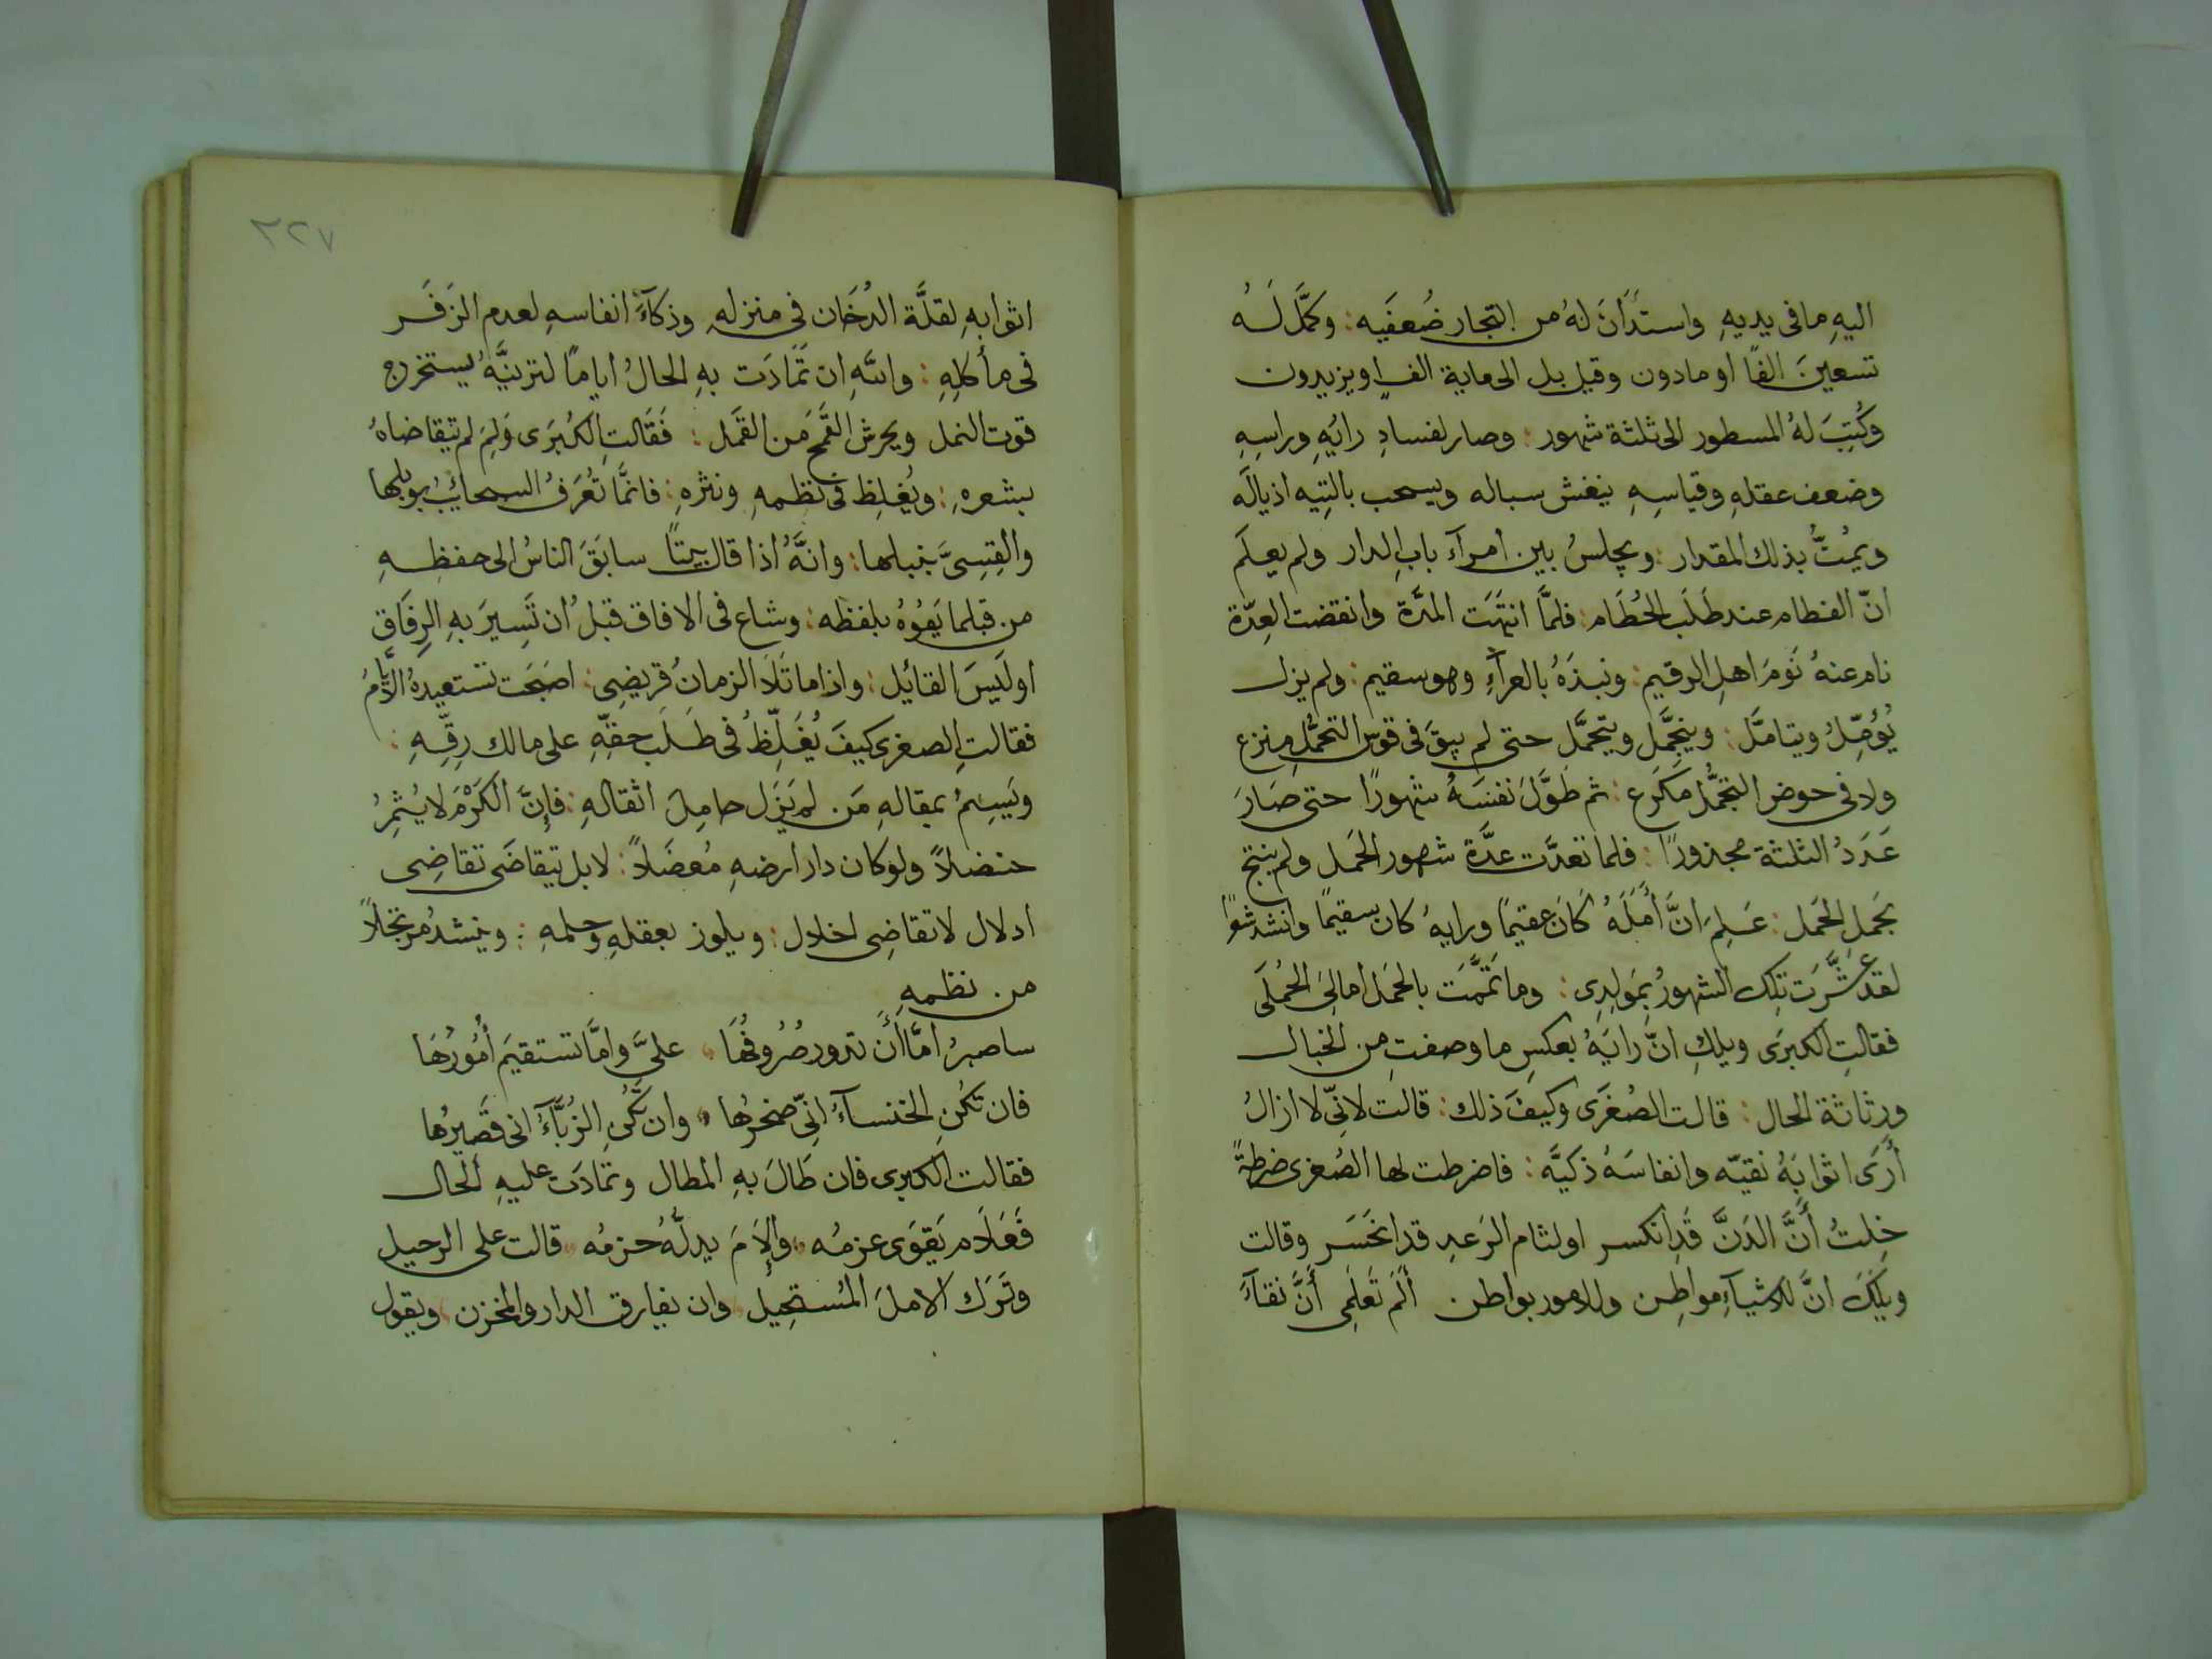 اليهِ ما فى يديهِ واستَدَانَ لهُ من التجار ضُعفَيه: وكَمَّلَ لَهُ
تسعينَ الفًا او ما دون وقيل بل الى ماية الفٍ او يزيدون
وكُتِبَ لهُ المسطور الى ثلثة شهور: وصار لفسادِ رايهِ وراسِهِ
وضعف عقلهِ وقياسِهِ ينفش سباله ويسحب بالتِيه اذيالَه
ويمُتُّ بذلك المقدار: ويجلسُ بين امرآء باب الدار ولم يعلَم
انّ الفطام عند طَلَب الحُطَام: فلمَّا انتَهَت المدَّة وانقضت العِدّة
نام عنهُ نَومَ اهلِ الرقيم: ونبذَهُ بالعرآءِ وهو سقيم: ولم يزل
يُؤمِّلُ ويتامَّل: ويتجمَّل ويتحمَّل حتى لم يبقَ فى قوس التحمُّلِ منزع
ولا فى حوض التجمُّل مَكرَع: ثم طوَّلَ نفسَهُ شهورًا حتى صَارَ
عَدَدُ الثلثة مجذورًا: فلما تعدَّت عدَّة شهور الحَمل ولم ينتج
بجَمل الحَمل: عَلِمَ انَّ أمَلَهُ كَانَ عقيمًا ورايهُ كان سقيمًا وانشد شعرًا
لقد عَشَّرَت تِلك الشهورُ بِمَولدِى: وما تَمَّمَت بالحَمل امالِىَ الحُملَى
فقالتِ الكبرَى ويلكِ انّ رايَهُ بعكسِ ما وصفتِ من الخبال
ورثاثة الحال: قالت الصُغرَى وكيفَ ذلك: قالت لانِّى لا ازالُ
أرَى اثوابَهُ نقيّه وانفاسَهُ ذكيَّه: فاضرطت لها الصُغرى ضرطةً
خِلتُ أنَّ الدَنَّ قَدِ انكسر او لثام الرَعدِ قد انحَسَر وقالت
ويلَكِ انَّ للاشيآءِ مواطِن وللامور بواطن ألَم تَعلَمِى أنَّ نقآءَ
٣٢٧
اثوابهِ لقلَّة الدُخَان فى منزلهِ وذكآءَ انفاسهِ لعدم الزَفَر
فى مأكلهِ: واللهِ ان تَمَادَت بهِ الحالُ ايامًا لترينَّهُ يستخرج
قوت النمل ويحرش القَمح مَن القَمل: فَقَالتِ الكُبرَى وَلِمَ لم يتقاضاهُ
بشعرهِ: ويُغلِظ فى نظمهِ ونثرهِ: فانمَّا تُعرَفُ السحائبُ بوبلها
والقِسِىَّ بنبلها: وانَّهُ اذا قال بيتًا سابَقَ الناسُ الى حفظِهِ
من قبلما يَفُوهُ بلفظه: وشاع فى الافاق قبلَ ان تَسِيرَ بهِ الرِفَاق
اوَلَيسَ القائِل: واذا ما تَلاَ الزمانُ قريضِى: اصبَحَت تستعيدهُ الأيَّامُ
فقالتِ الصغرى كيفَ يُغَلِّظُ فى طَلَب حقِّهِ على مالك رِقِّهِ:
ويَسِمُ بمقالهِ مَن لم يَزَل حامِلَ اثقالهِ: فإنَّ الكَرْمَ لا يُثمِرُ
حنضلاً ولو كان دار ارضهِ مُعضَلاً: لا بل يتقاضَى تقاضِى
ادلال لا تقاضِى اخلال: ويلوز بعقلهِ وحلمهِ: وينشدُ مرتجلاً
من نظمهِ
ساصبرُ امَّا أن تدور صُرُوفُهَا علىَّ وامَّا تستقيمَ أُمُورُهَا
فان تكُنِ الخنسآءُ انِّى صخرُها وان تكُنِ الزُبَّآءُ انى قَصيرُها
فقالت الكبرى فان طَالَ بهِ المطال وتمادَت عليهِ الحال
فَعَلاَم يَقوَى عزمُه وإلاَمَ يدلُّهُ حزمُه قالت على الرحيل
وتَرَك الاملَ المُستحِيل وان يفارق الدار والمخزن ويقول